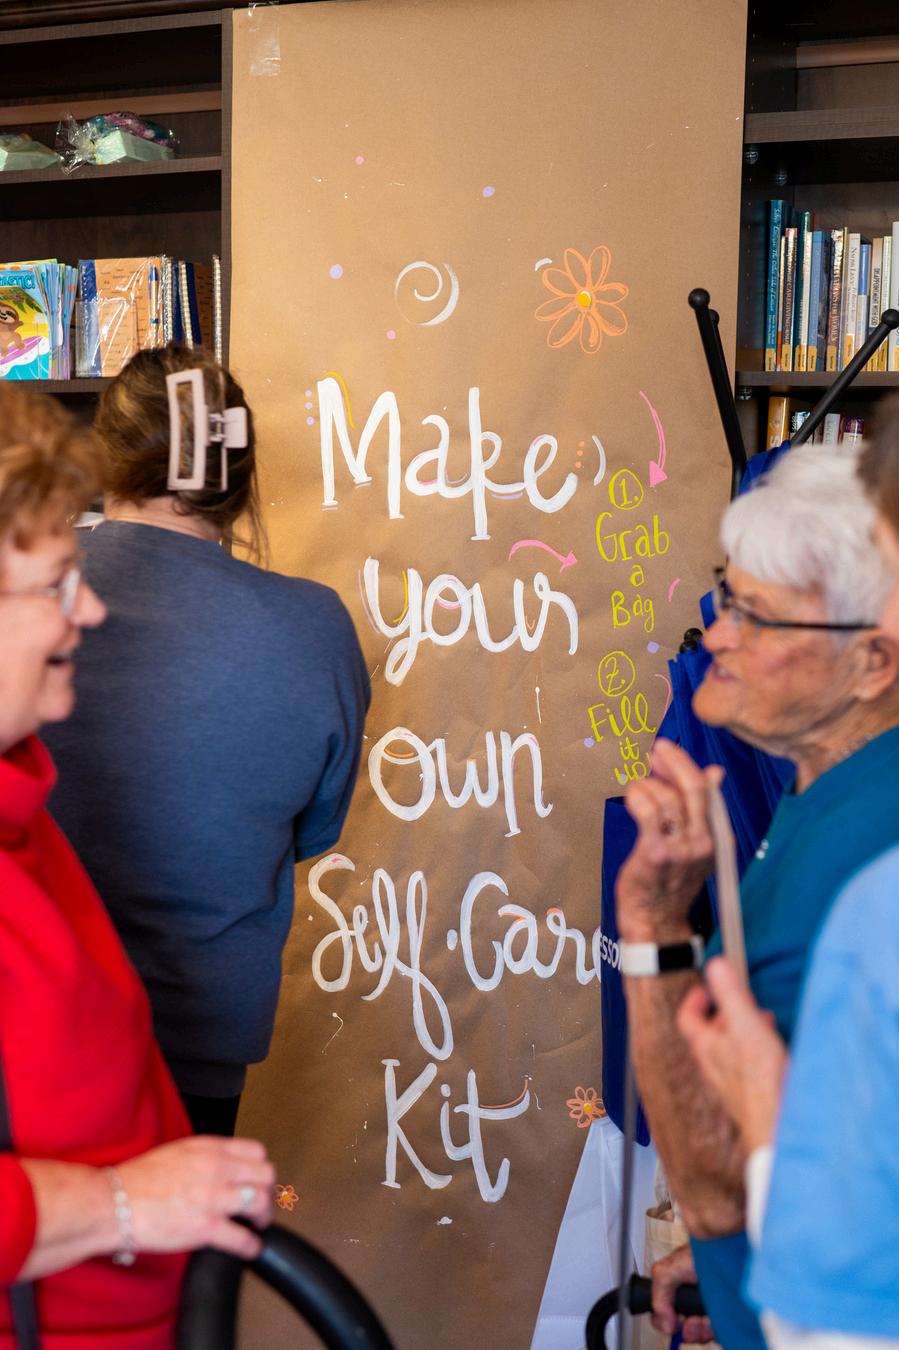 Make
your
own
Self-Care
Kit
1.
Grab
a
Bag
2.
Fill
it
up